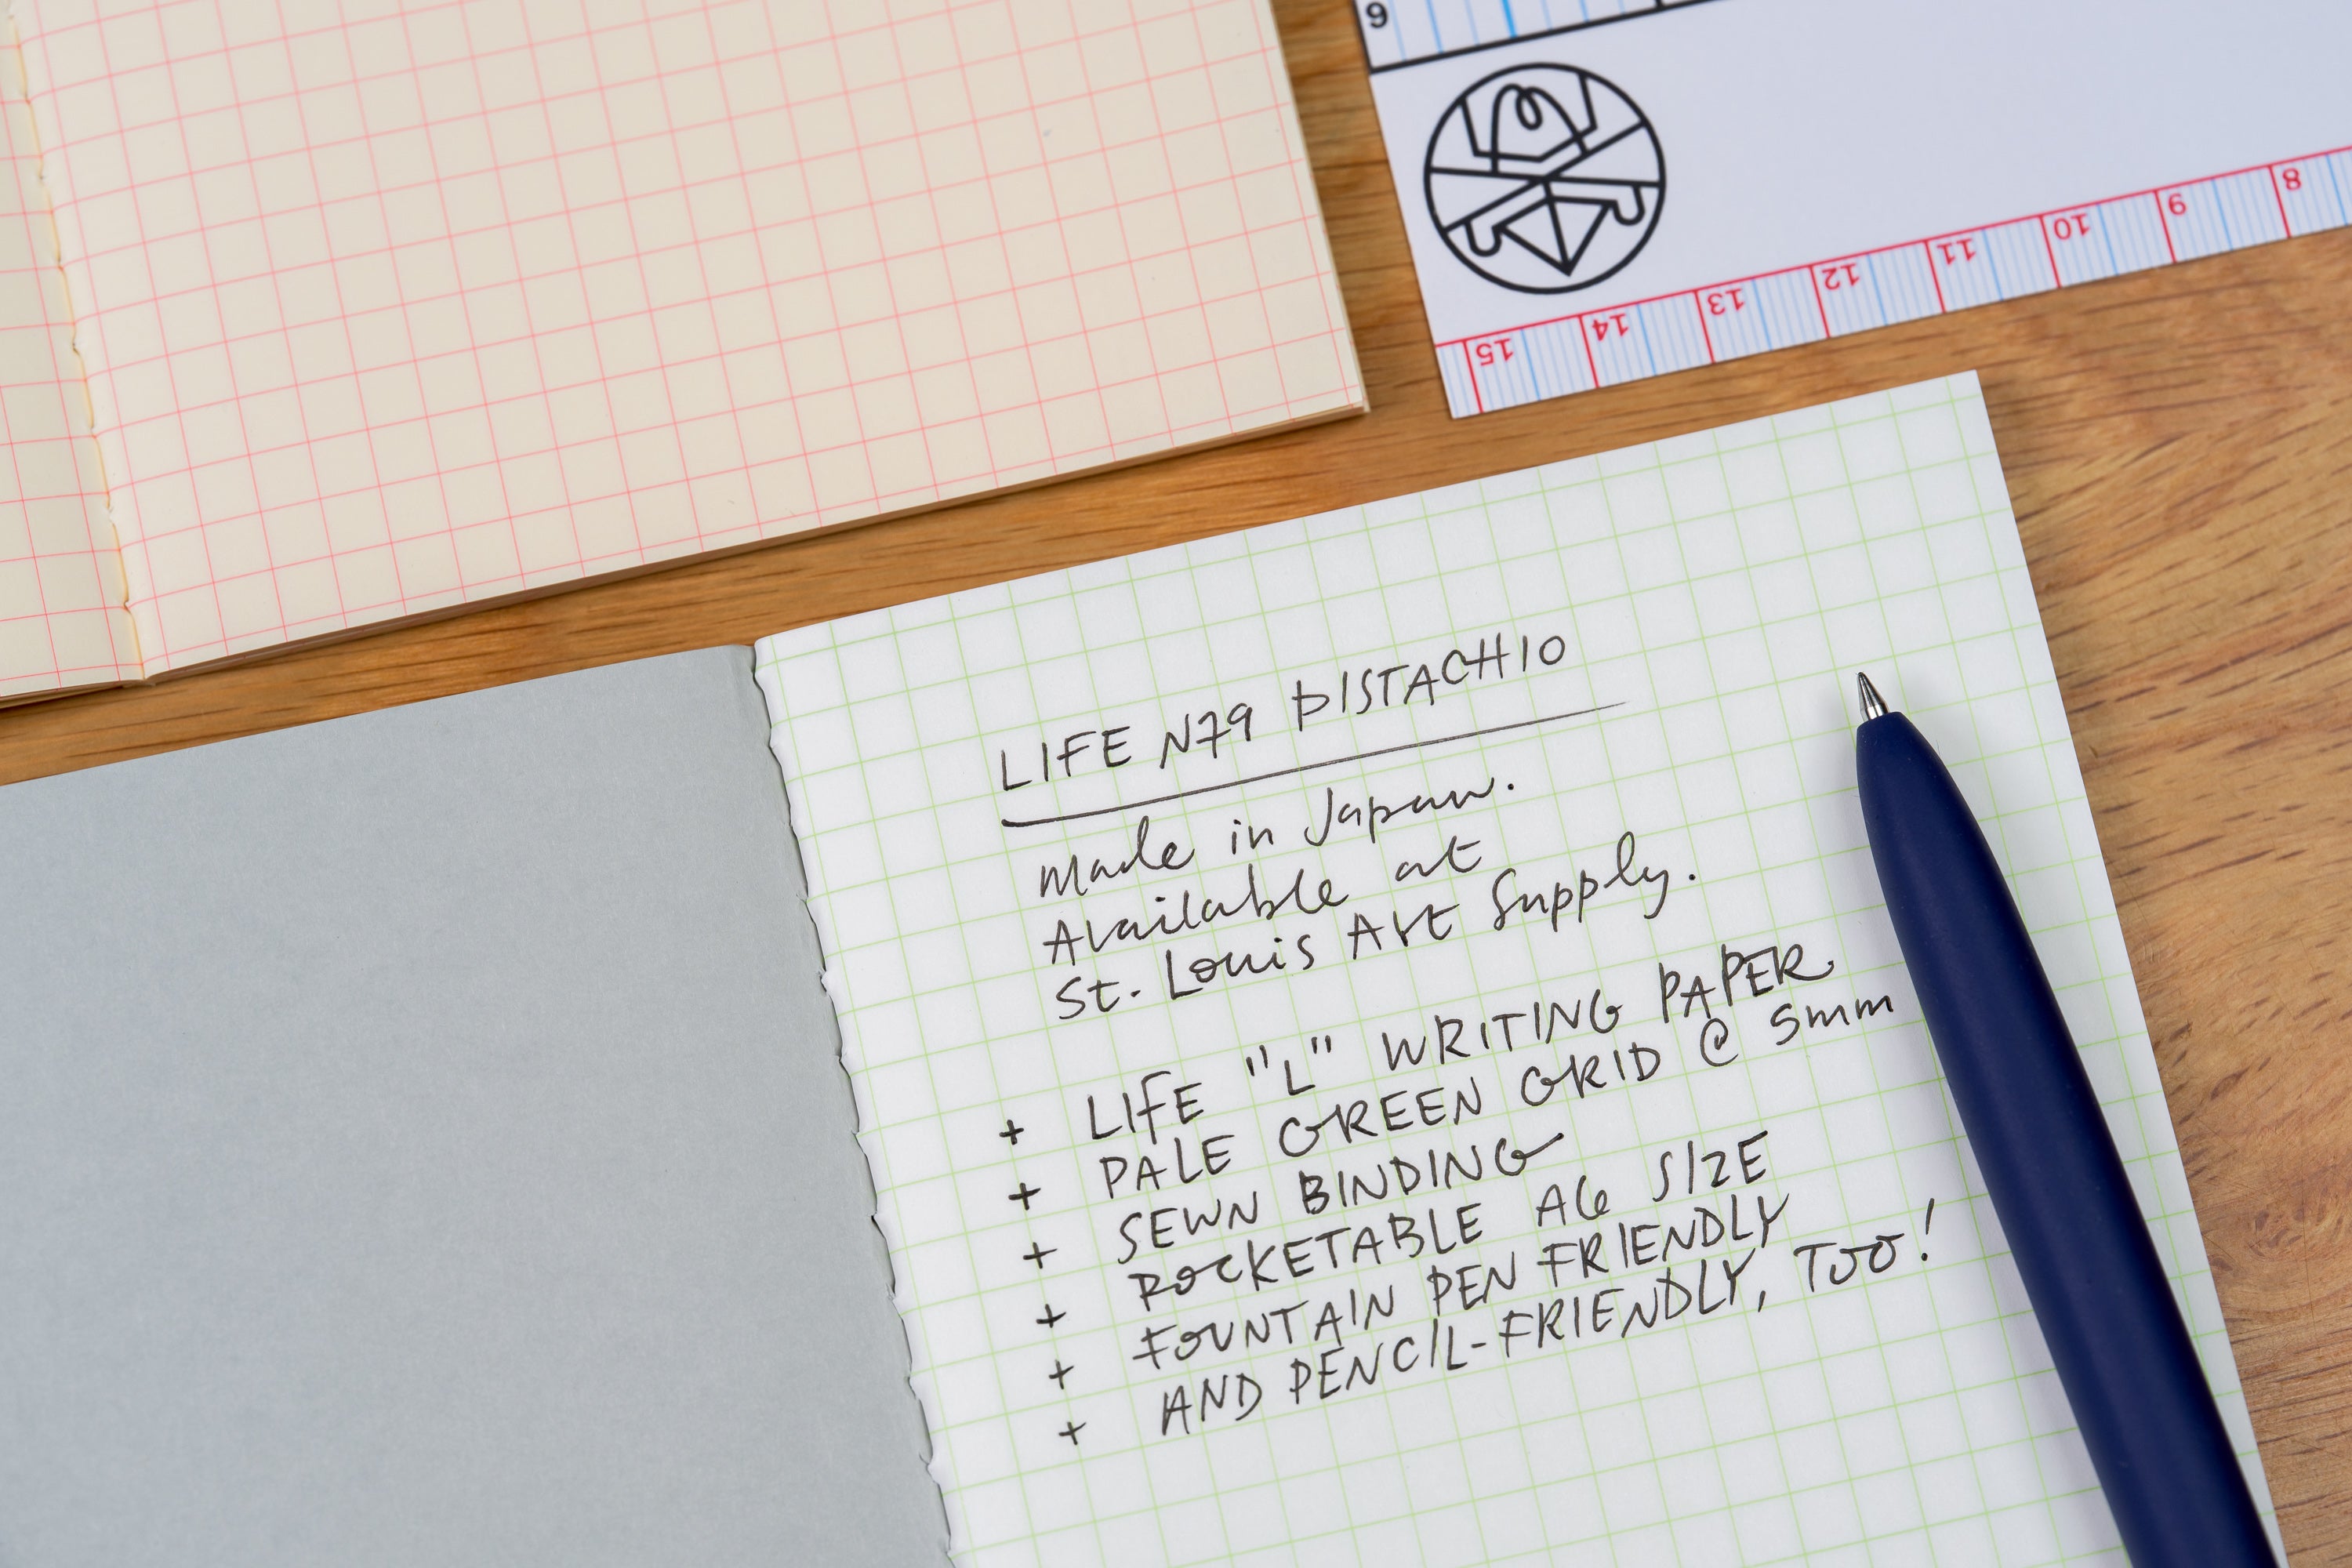 6
15 14 13 12 11 10 9 8
LIFE N79 PISTACHIO
Made in Japan.
Available at
St. Louis Art Supply.
+ LIFE "L" WRITING PAPER
+ PALE GREEN GRID @ 5mm
+ SEWN BINDING
+ POCKETABLE A6 SIZE
+ FOUNTAIN PEN FRIENDLY
+ AND PENCIL-FRIENDLY, TOO!